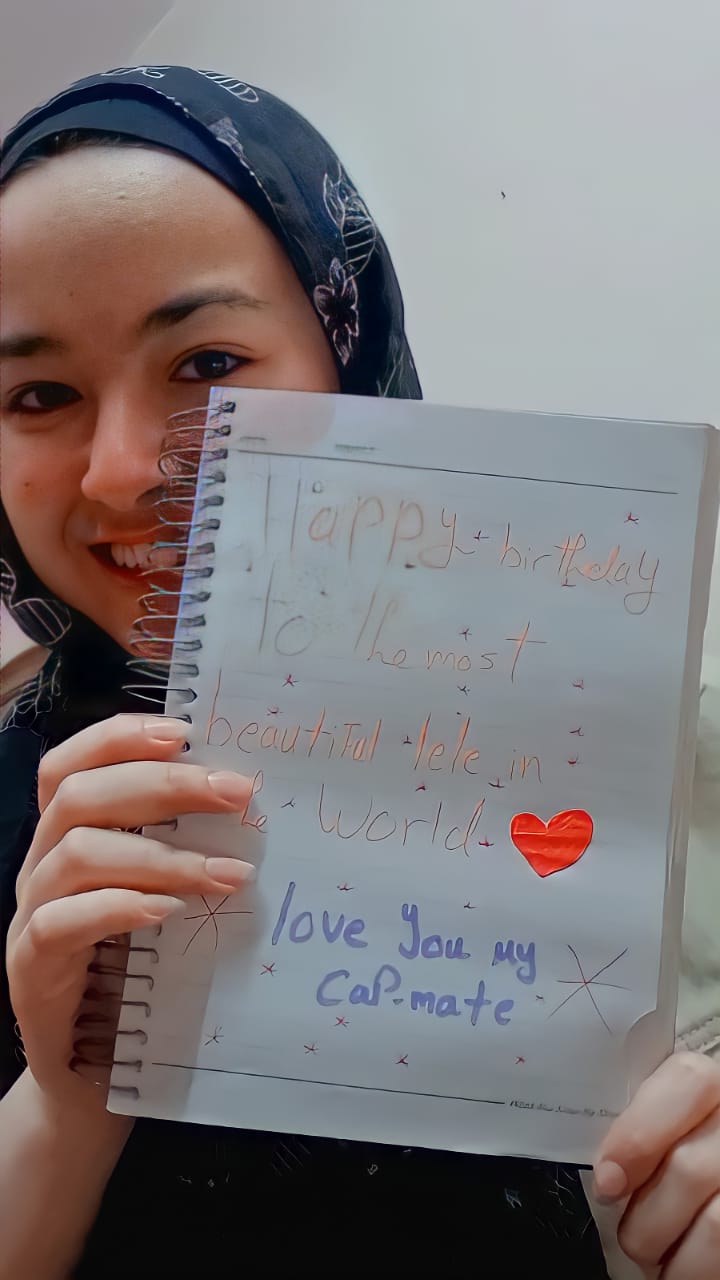 Happy birthday
to the most
beautiful lele in
the World
love you my
Cap-mate